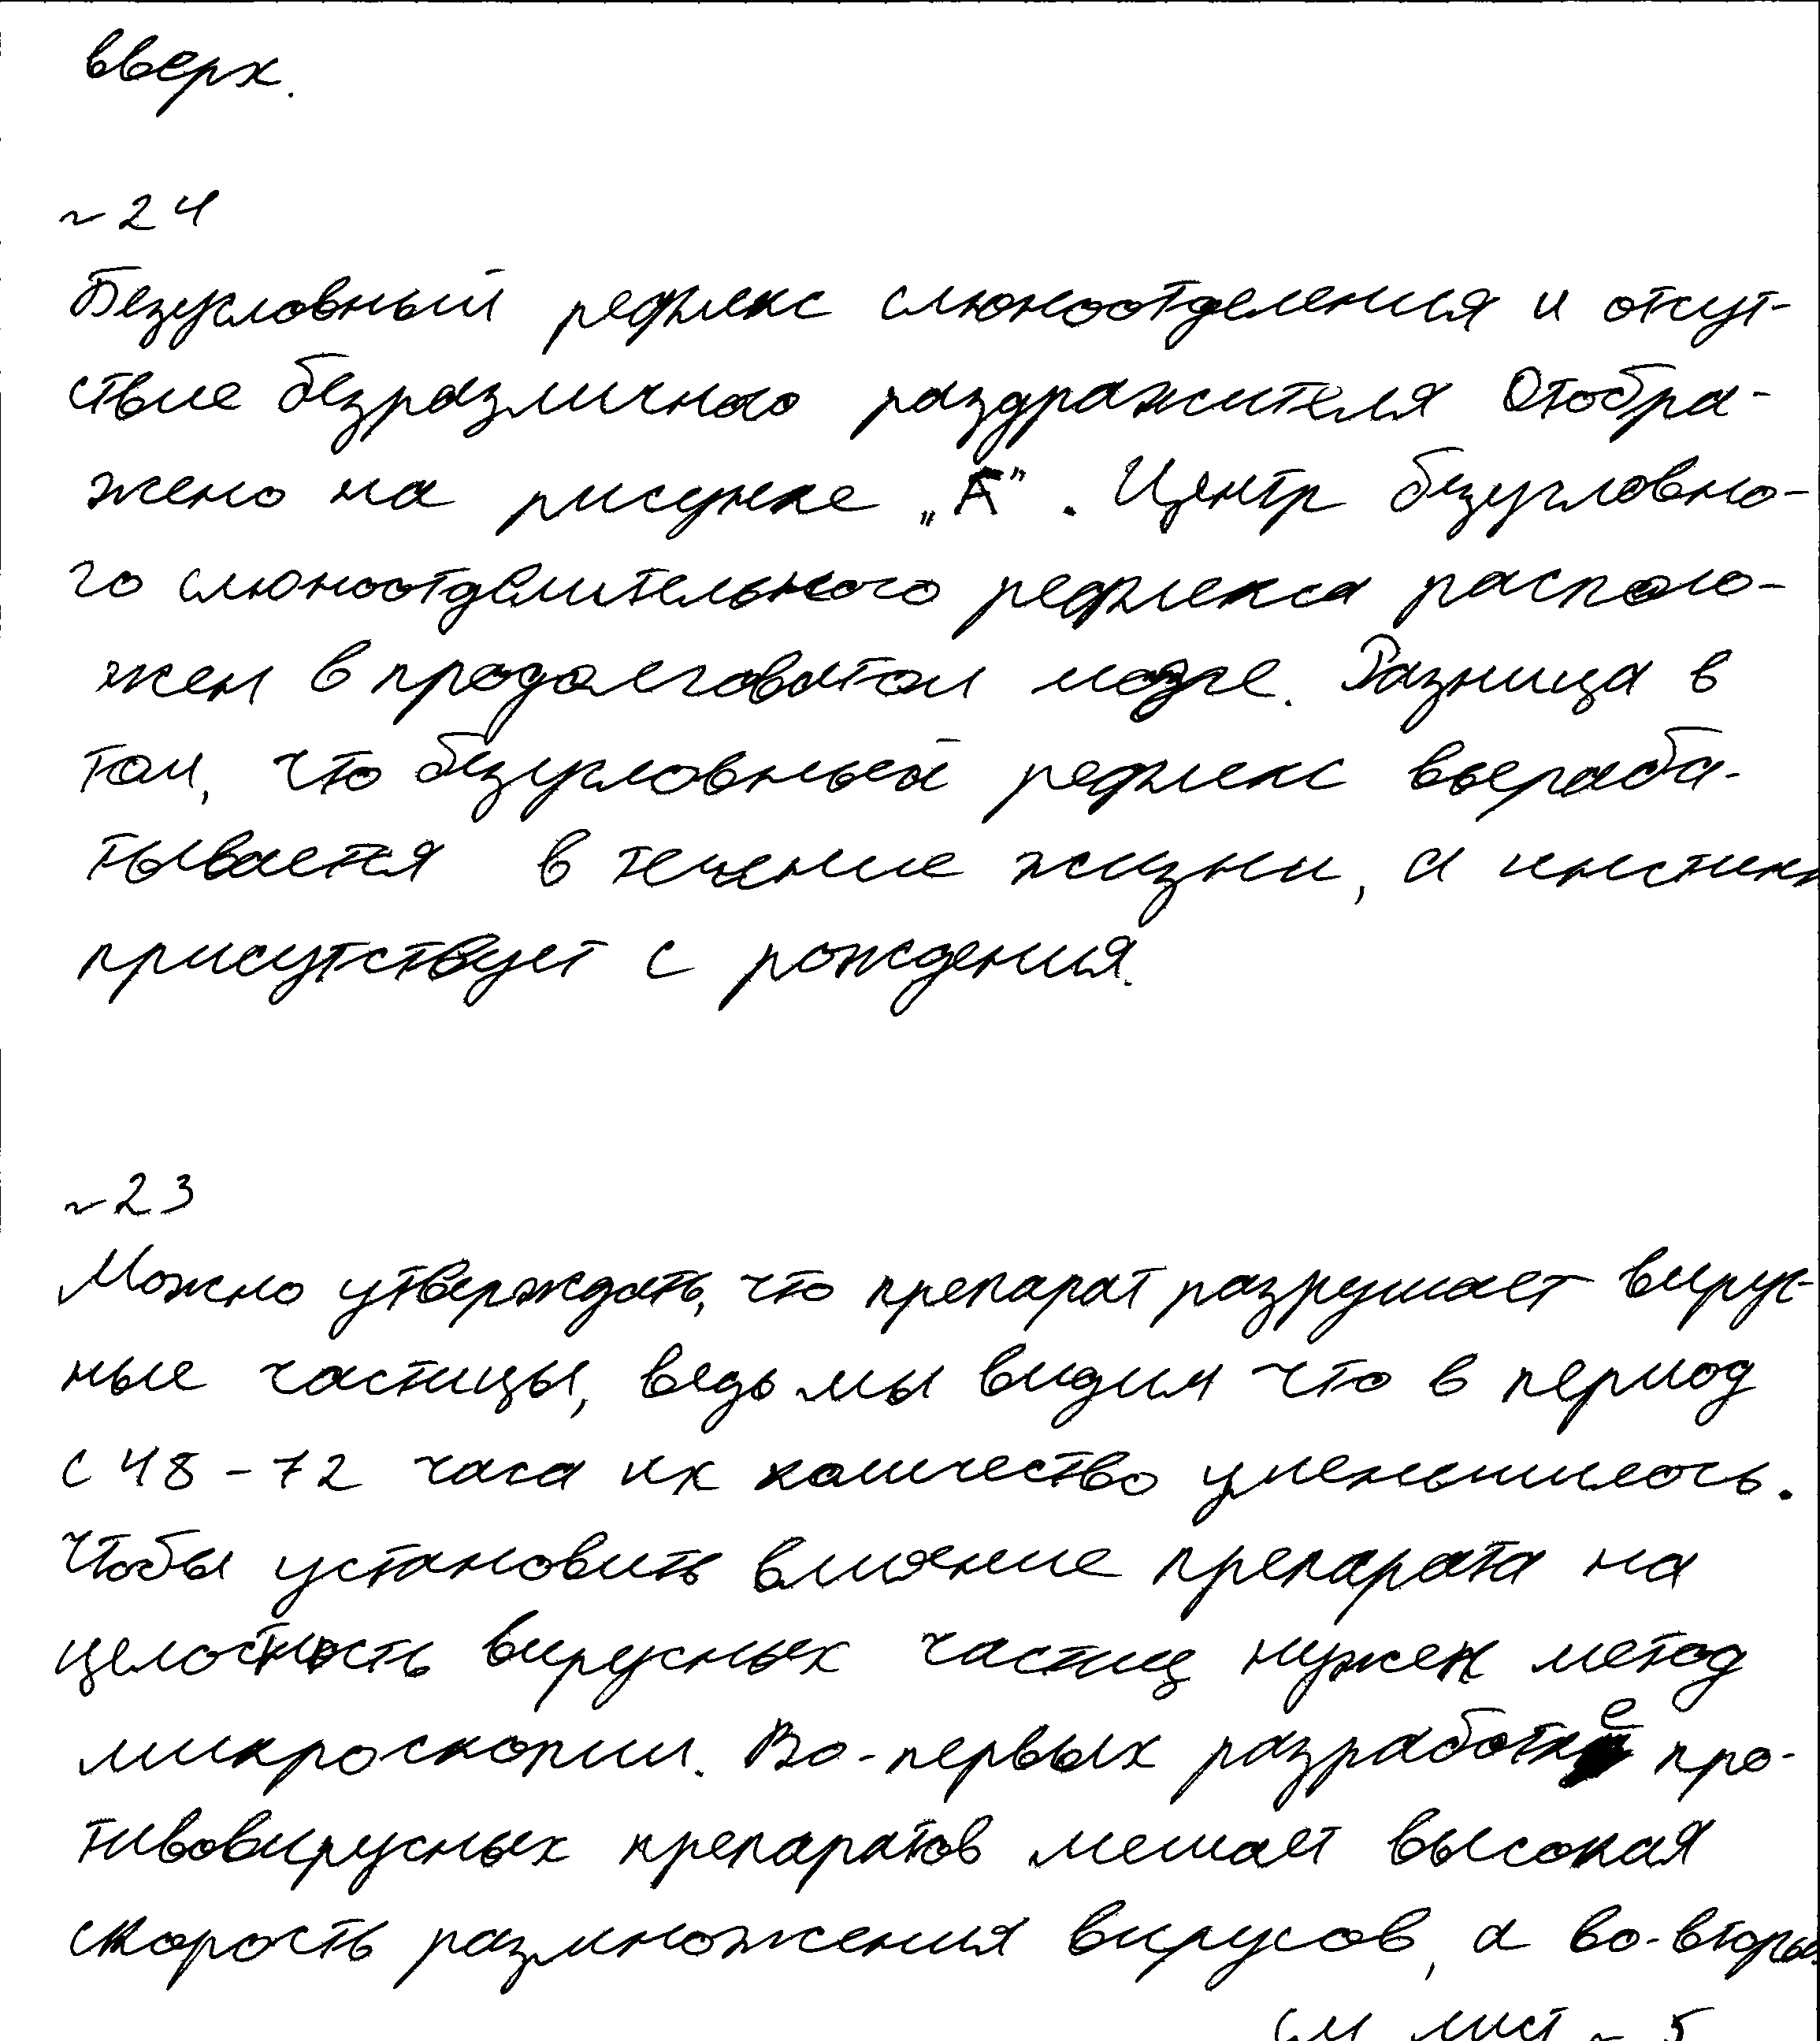 вверх.
~24
Безусловный рефлекс слюноотделения и отсут-
ствие безразличного раздражителя Отобра-
жено на рисунке „А". Центр безусловно-
го слюноотделительного рефлекса располо-
жен в продолговатом мозге. Разница в
том, что безусловный рефлекс выраба-
тывается в течение жизни, а инстинк
присутствует с рождения.
~23
Можно утверждать, что препарат разрушает вирус-
ные частицы, ведь мы видим что в период
с 48-72 часа их количество уменьшилось.
Чтобы установить влияние препарата на
целостность вирусных частиц нужен метод
микроскопии. Во-первых разработке про-
тивовирусных препаратов мешает высокая
скорость размножения вирусов, а во-вторых
см лист ~ 5